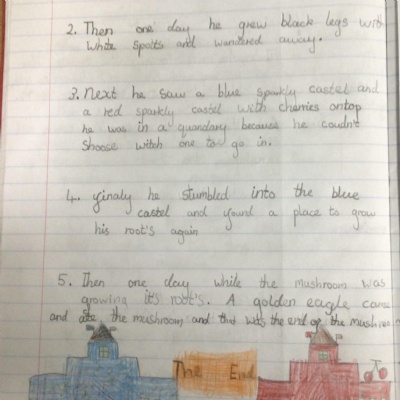 2. Then one day he grew black legs with
white spotts and wandered away.
3. Next he saw a blue sparkly castel and
a red sparkly castel with cherries ontop
he was in a quandary because he coudn't
shoose witch one to go in.
4. finaly he stumbled into the blue
castel and found a place to grow
his root's again
5. Then one day while the mushroom was
growing it's root's. A golden eagle came
and ate the mushroom and that was the end of the mushroom
The End